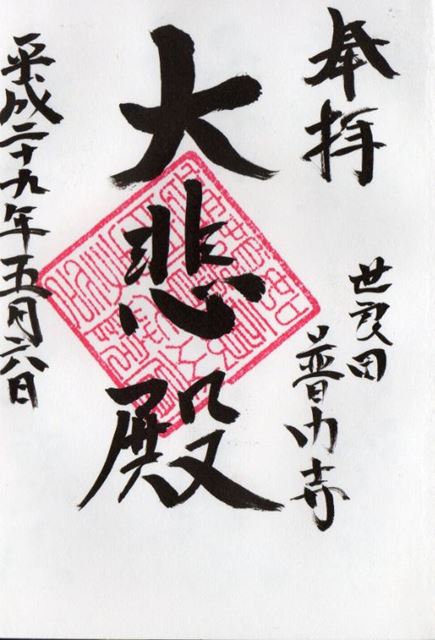 奉拝
世良田
普門寺
大悲殿
平成二十九年五月六日